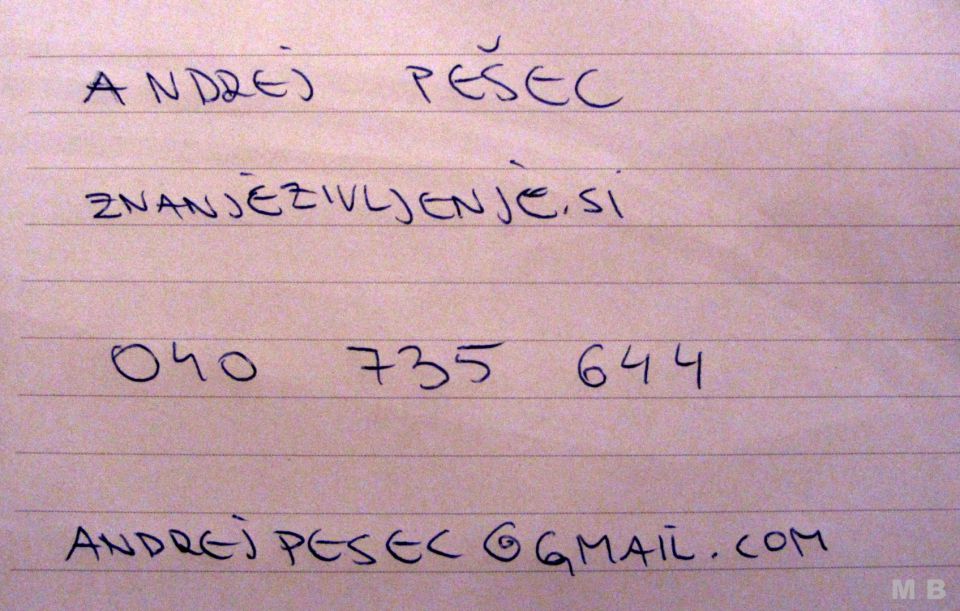 ANDREJ PEŠEC
ZNANJEZIVLJENJE.SI
040 735 644
ANDREJPESEC@GMAIL.COM
M B